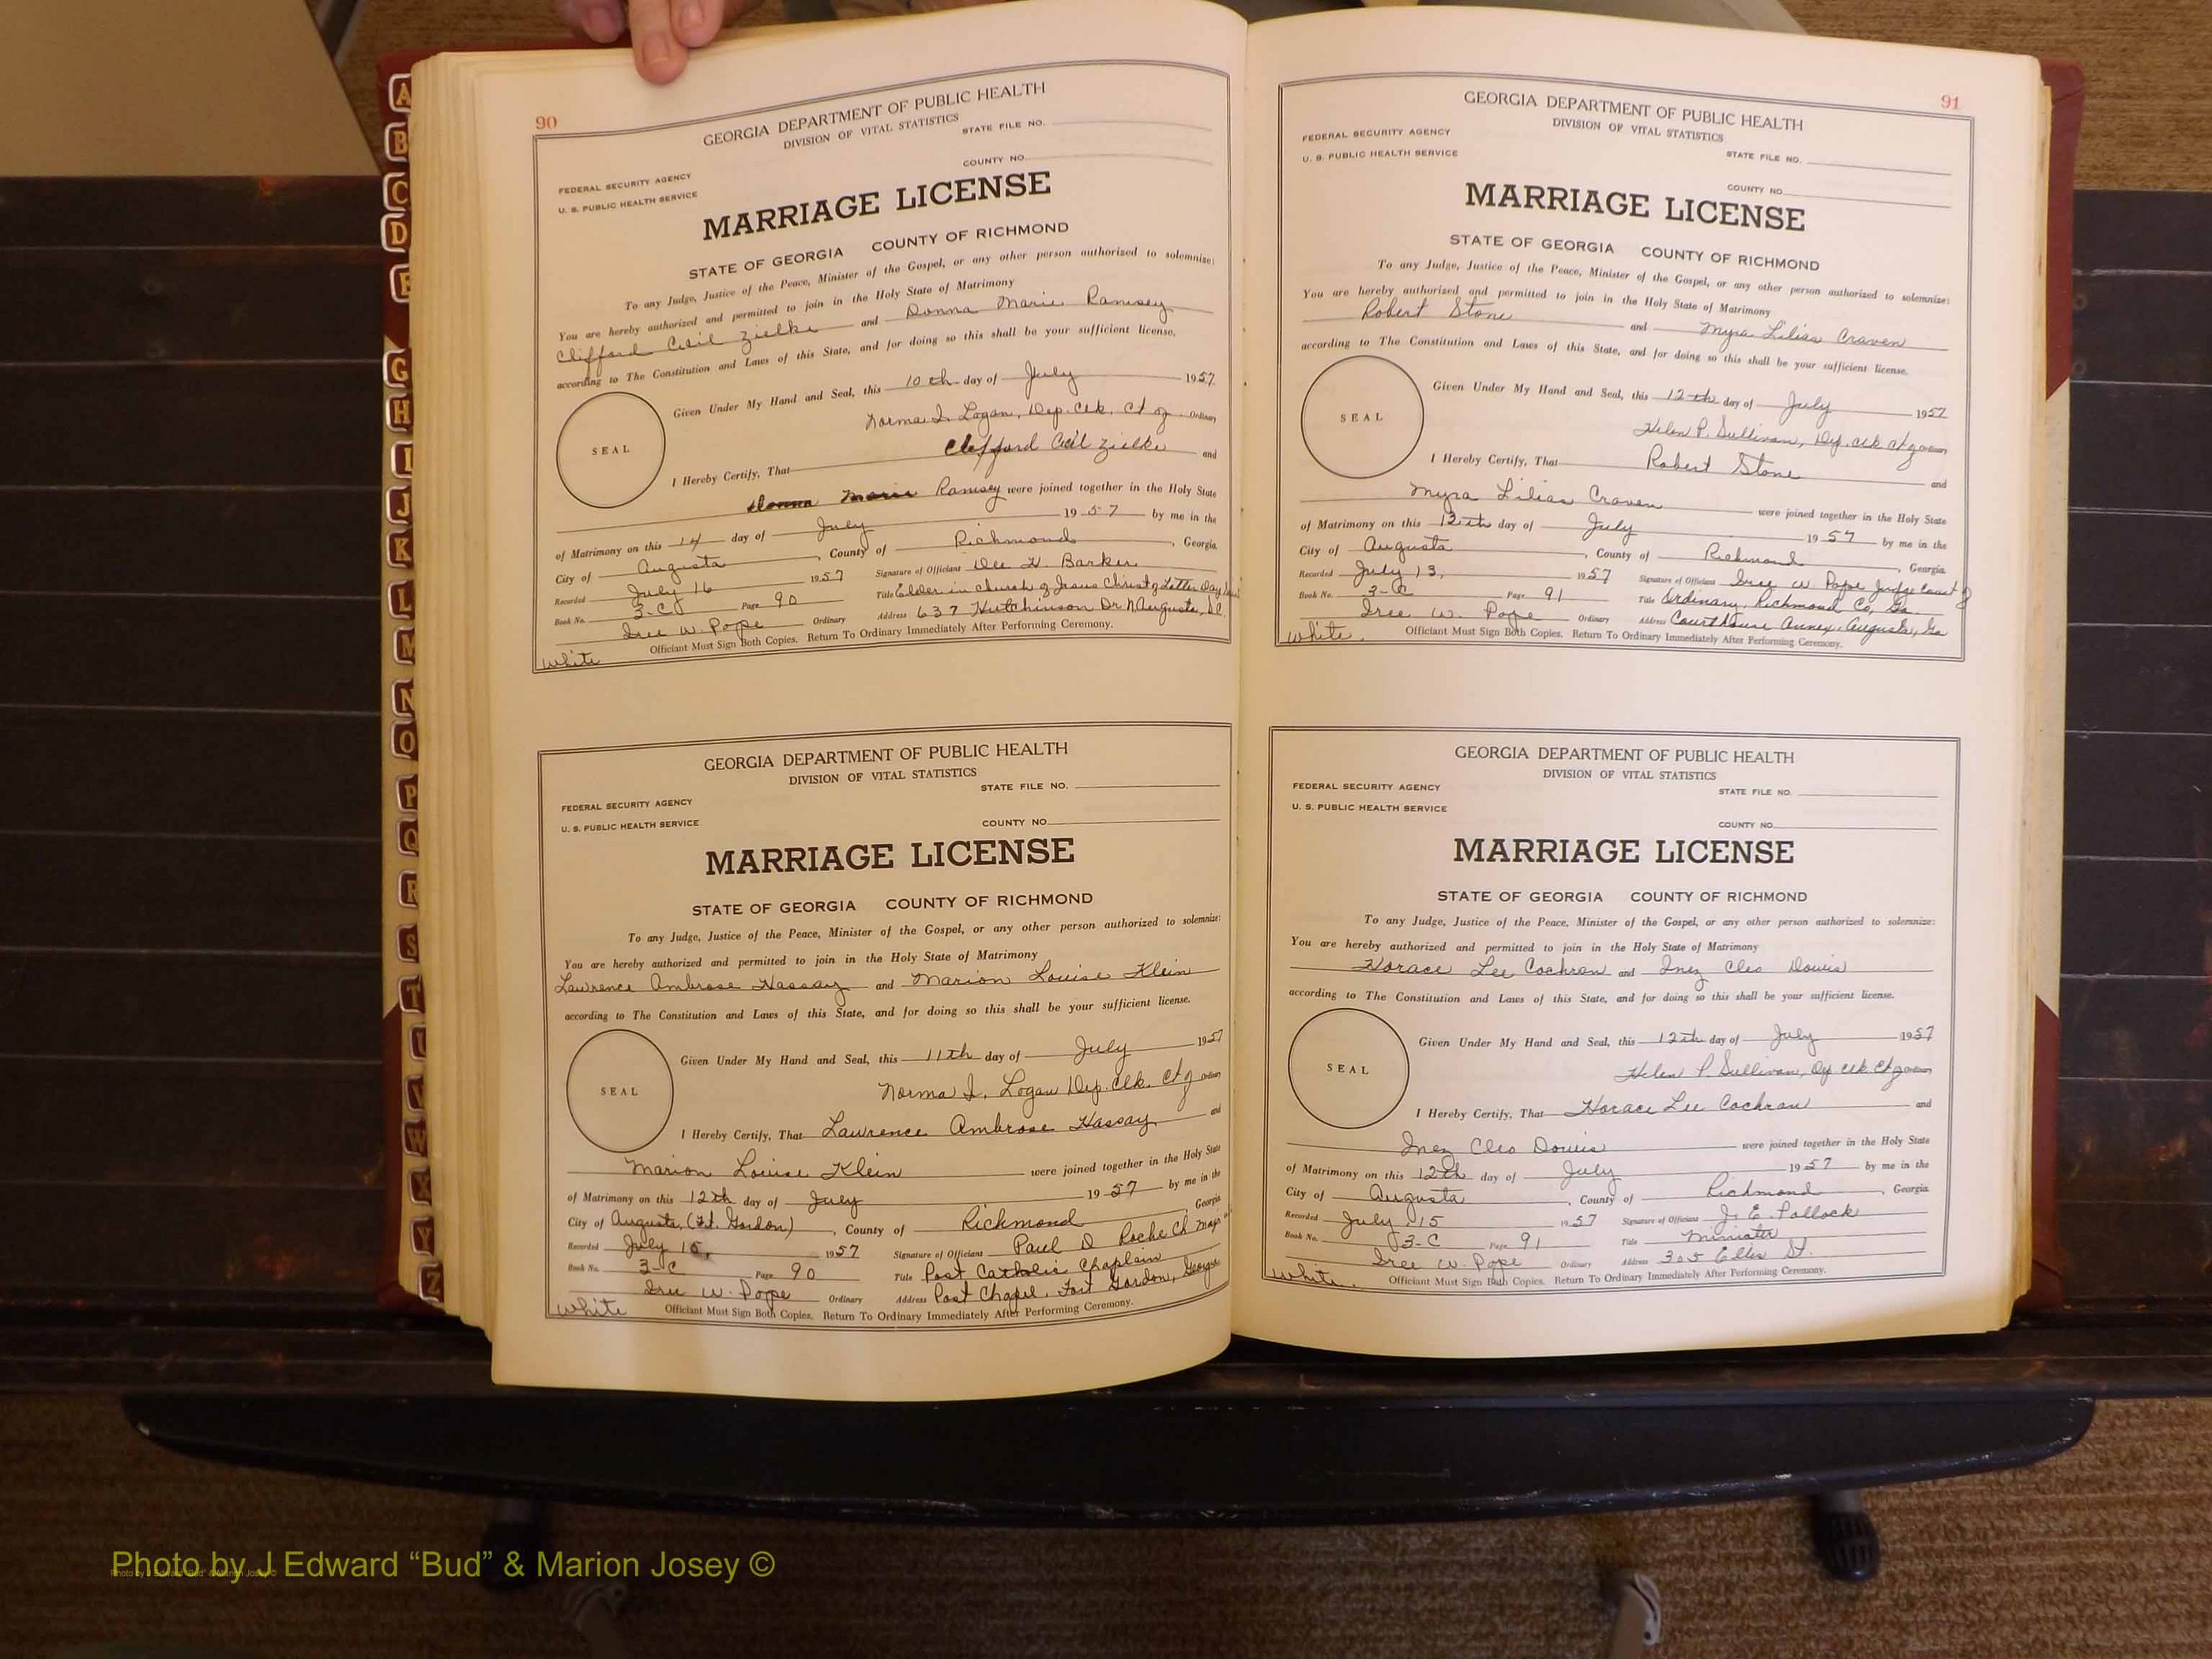 A
B
C
D
F
G
H
I
J
K
L
M
N
O
P
Q
R
S
T
U
V
W
X
Y
Z
90
GEORGIA DEPARTMENT OF PUBLIC HEALTH
DIVISION OF VITAL STATISTICS
STATE FILE NO.
COUNTY NO.
FEDERAL SECURITY AGENCY
U. S. PUBLIC HEALTH SERVICE
MARRIAGE LICENSE
STATE OF GEORGIA COUNTY OF RICHMOND
To any Judge, Justice of the Peace, Minister of the Gospel, or any other person authorized to solemnize:
You are hereby authorized and permitted to join in the Holy State of Matrimony
Clifford Cecil Zielke and Donna Marie Ramsey
according to The Constitution and Laws of this State, and for doing so this shall be your sufficient license.
SEAL
Given Under My Hand and Seal, this 10th day of July 1957
Norma I. Logan, Dep. Clk. Ct of Ordinary
I Hereby Certify, That Clifford Cecil Zielke and
Donna Marie Ramsey were joined together in the Holy State
of Matrimony on this 14 day of July 1957 by me in the
City of Augusta, County of Richmond, Georgia.
Recorded July 16 1957 Signature of Officiant Dee H. Barker
Book No. 3-C Page 90 Title Elder in church of Jesus Christ of Latter Day
Iree W. Pope Ordinary Address 637 Hutchinson Dr N Augusta, S.C.
Officiant Must Sign Both Copies. Return To Ordinary Immediately After Performing Ceremony.
White
GEORGIA DEPARTMENT OF PUBLIC HEALTH
DIVISION OF VITAL STATISTICS
STATE FILE NO.
FEDERAL SECURITY AGENCY
U. S. PUBLIC HEALTH SERVICE
COUNTY NO.
MARRIAGE LICENSE
STATE OF GEORGIA COUNTY OF RICHMOND
To any Judge, Justice of the Peace, Minister of the Gospel, or any other person authorized to solemnize:
You are hereby authorized and permitted to join in the Holy State of Matrimony
Lawrence Ambrose Hassay and Marion Louise Klein
according to The Constitution and Laws of this State, and for doing so this shall be your sufficient license.
SEAL
Given Under My Hand and Seal, this 11th day of July 1957
Norma I. Logan Dep. Clk. Ct of Ordinary
I Hereby Certify, That Lawrence Ambrose Hassay and
Marion Louise Klein were joined together in the Holy State
of Matrimony on this 12th day of July 1957 by me in the
City of Augusta, (Ft. Gordon), County of Richmond Georgia
Recorded July 1957 Signature of Officiant Paul D Roche Ch Maj
Book No. 3-C Page 90 Title Post Catholic Chaplain
Iree W. Pope Ordinary Address Post Chapel, Fort Gordon, Georgia
Officiant Must Sign Both Copies. Return To Ordinary Immediately After Performing Ceremony.
White
91
GEORGIA DEPARTMENT OF PUBLIC HEALTH
DIVISION OF VITAL STATISTICS
FEDERAL SECURITY AGENCY
U. S. PUBLIC HEALTH SERVICE
STATE FILE NO.
COUNTY NO.
MARRIAGE LICENSE
STATE OF GEORGIA COUNTY OF RICHMOND
To any Judge, Justice of the Peace, Minister of the Gospel, or any other person authorized to solemnize:
You are hereby authorized and permitted to join in the Holy State of Matrimony
Robert Stone and Myra Lilias Craven
according to The Constitution and Laws of this State, and for doing so this shall be your sufficient license.
SEAL
Given Under My Hand and Seal, this 12th day of July 1957
Helen P. Sullivan, Dep. clk ct of Ordinary
I Hereby Certify, That Robert Stone and
Myra Lilias Craven were joined together in the Holy State
of Matrimony on this 12th day of July 1957 by me in the
City of Augusta, County of Richmond, Georgia.
Recorded July 13, 1957 Signature of Officiant Iree W. Pope Judge Court of
Book No. 3-C Page 91 Title Ordinary, Richmond Co, Ga.
Iree W. Pope Ordinary Address Courthouse Annex, Augusta, Ga
Officiant Must Sign Both Copies. Return To Ordinary Immediately After Performing Ceremony.
White.
GEORGIA DEPARTMENT OF PUBLIC HEALTH
DIVISION OF VITAL STATISTICS
FEDERAL SECURITY AGENCY
STATE FILE NO.
U. S. PUBLIC HEALTH SERVICE
COUNTY NO.
MARRIAGE LICENSE
STATE OF GEORGIA COUNTY OF RICHMOND
To any Judge, Justice of the Peace, Minister of the Gospel, or any other person authorized to solemnize:
You are hereby authorized and permitted to join in the Holy State of Matrimony
Horace Lee Cochran and Inez Cleo Dowis
according to The Constitution and Laws of this State, and for doing so this shall be your sufficient license.
SEAL
Given Under My Hand and Seal, this 12th day of July 1957
Helen P. Sullivan, Dp clk Ct of Ordinary
I Hereby Certify, That Horace Lee Cochran and
Inez Cleo Dowis were joined together in the Holy State
of Matrimony on this 12th day of July 1957 by me in the
City of Augusta, County of Richmond, Georgia.
Recorded July 15 1957 Signature of Officiant J. E. Pollock
Book No. 3-C Page 91 Title Minister
Iree W. Pope Ordinary Address 305 Ellis St.
Officiant Must Sign Both Copies. Return To Ordinary Immediately After Performing Ceremony.
White.
Photo by J Edward “Bud” & Marion Josey ©